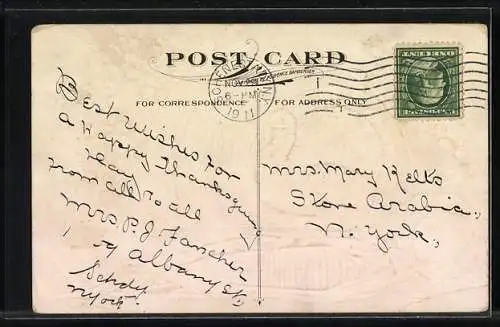 POST CARD
NOV
6-PM
1911
FOR CORRESPONDENCE
FOR ADDRESS ONLY
Best Wishes for
a Happy Thanksgiving
Day
from all to all
Mrs. P.J. Fancher
Albany St.
Schdy
N.York.
Mrs. Mary Kelts
Stone Arabia,
N. York,